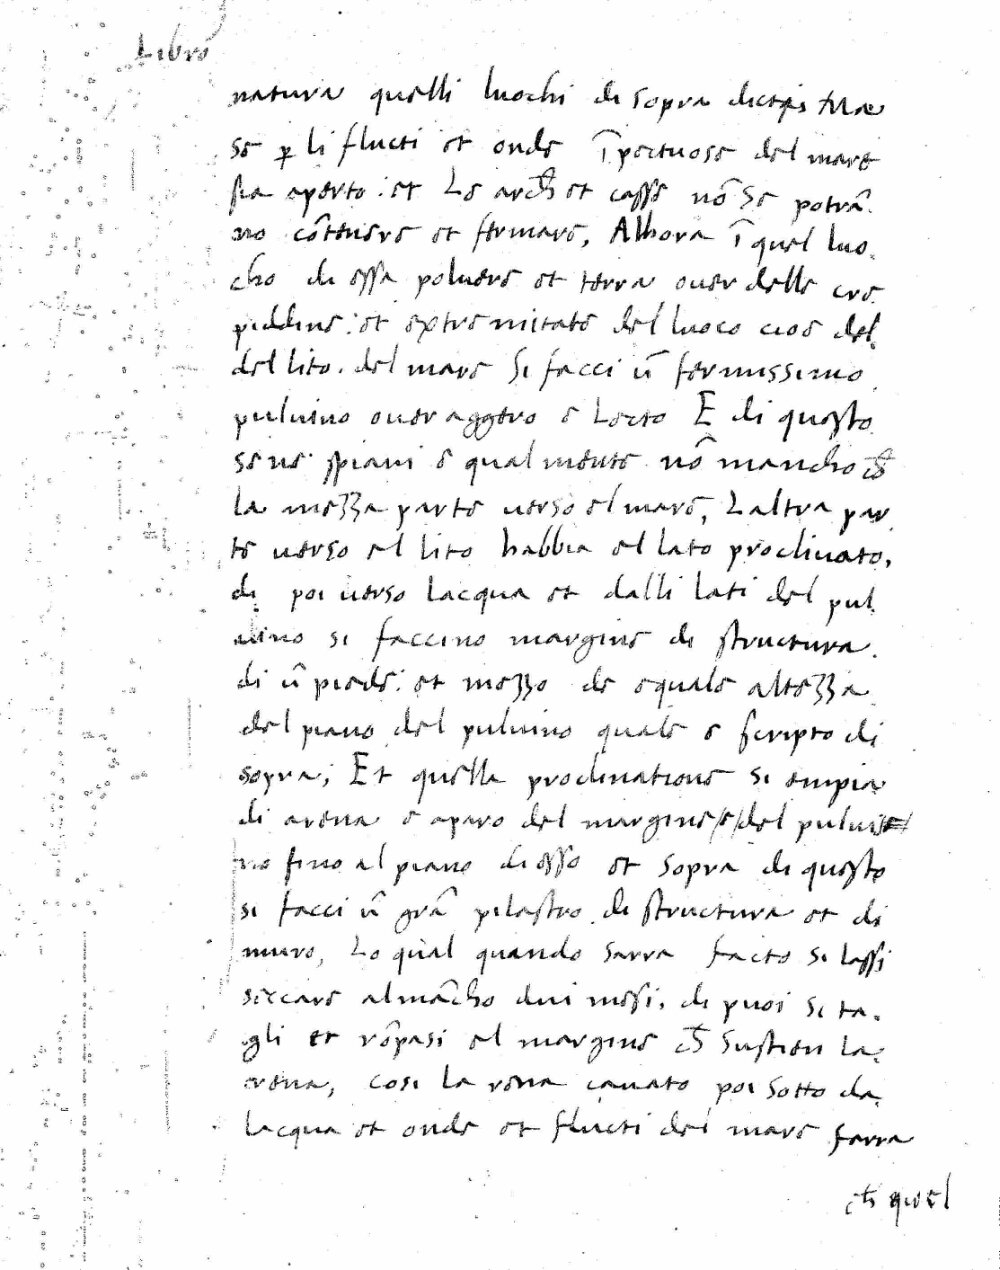 Libro
natura quelli luochi di sopra dicti, Ma
se p̱ li flucti et onde īpetuose del mare
sia aperto: et Le arch̄ et casse nō se potrā
no cōtenere et fermare, Alhora ī quel luo
cho di essa poluere et terra ouer delle cre
piddine: et extremitate del luoco cioe del
del lito. del mare Si facci ū fermissimo
puluino ouer aggero e Lecto E di questo
sene spiani equalmente nō mancho ch̄
la mezza parte uerso el mare, Laltra par
te uerso el lito habbia el lato proclinato,
di poi uerso lacqua et dalli lati del pul
uino si faccino margine di structura
di ū piede: et mezzo de equale altezza
del piano del puluino quale e scripto di
sopra; Et quella proclinatione si empia
di arena e aparo del margine/e/del pului
no fino al piano di esso et sopra di questo
si facci ū grā pilastro di structura et di
muro, Lo qual quando sarra facto si lassi
siccare almācho dui mesi, di puoi si ta.
gli et rōpasi el margine ch̄ Sustien la
rena, cosi la rena cauato poi sotto da
lacqua et onde et flucti del mare farra
ch̄ quel